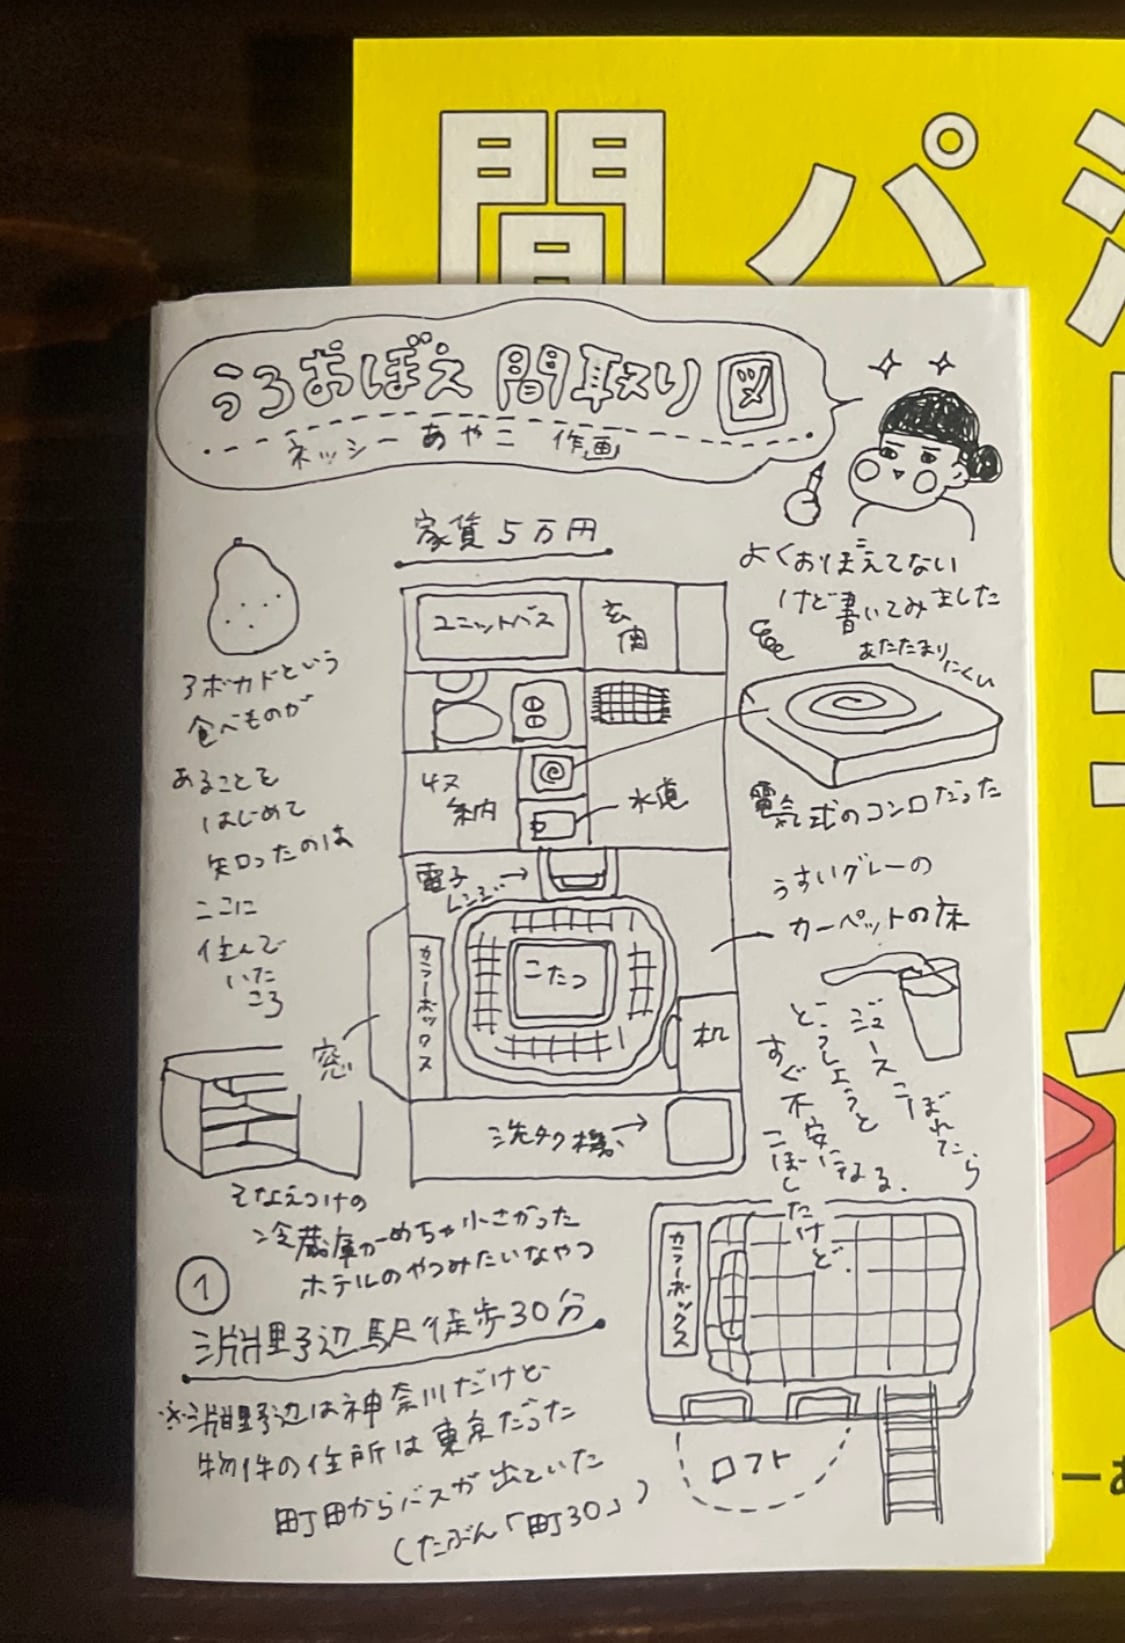 間 パ
うろおぼえ 間取り 図
ネッシーあやこ 作画
家賃5万円
よくおぼえてない
けど書いてみました
ユニットバス
玄関
あたたまり
にくい
電気式のコンロだった
アボカドという
食べものが
あることを
はじめて
知ったのは
ここに
住んで
いた
ころ
収納
水道
電子
レンジ
うすいグレーの
カーペットの床
カラーボックス
こたつ
机
窓
洗タク機
ジュースこぼれたら
どうしようと
すぐ不安になる。
こぼしたけど。
そなえつけの
冷蔵庫がめちゃ小さかった
ホテルのやつみたいなやつ
1
淵野辺駅徒歩30分
※淵野辺は神奈川だけど
物件の住所は東京だった
町田からバスが出ていた
(たぶん「町30」)
カラーボックス
ロフト